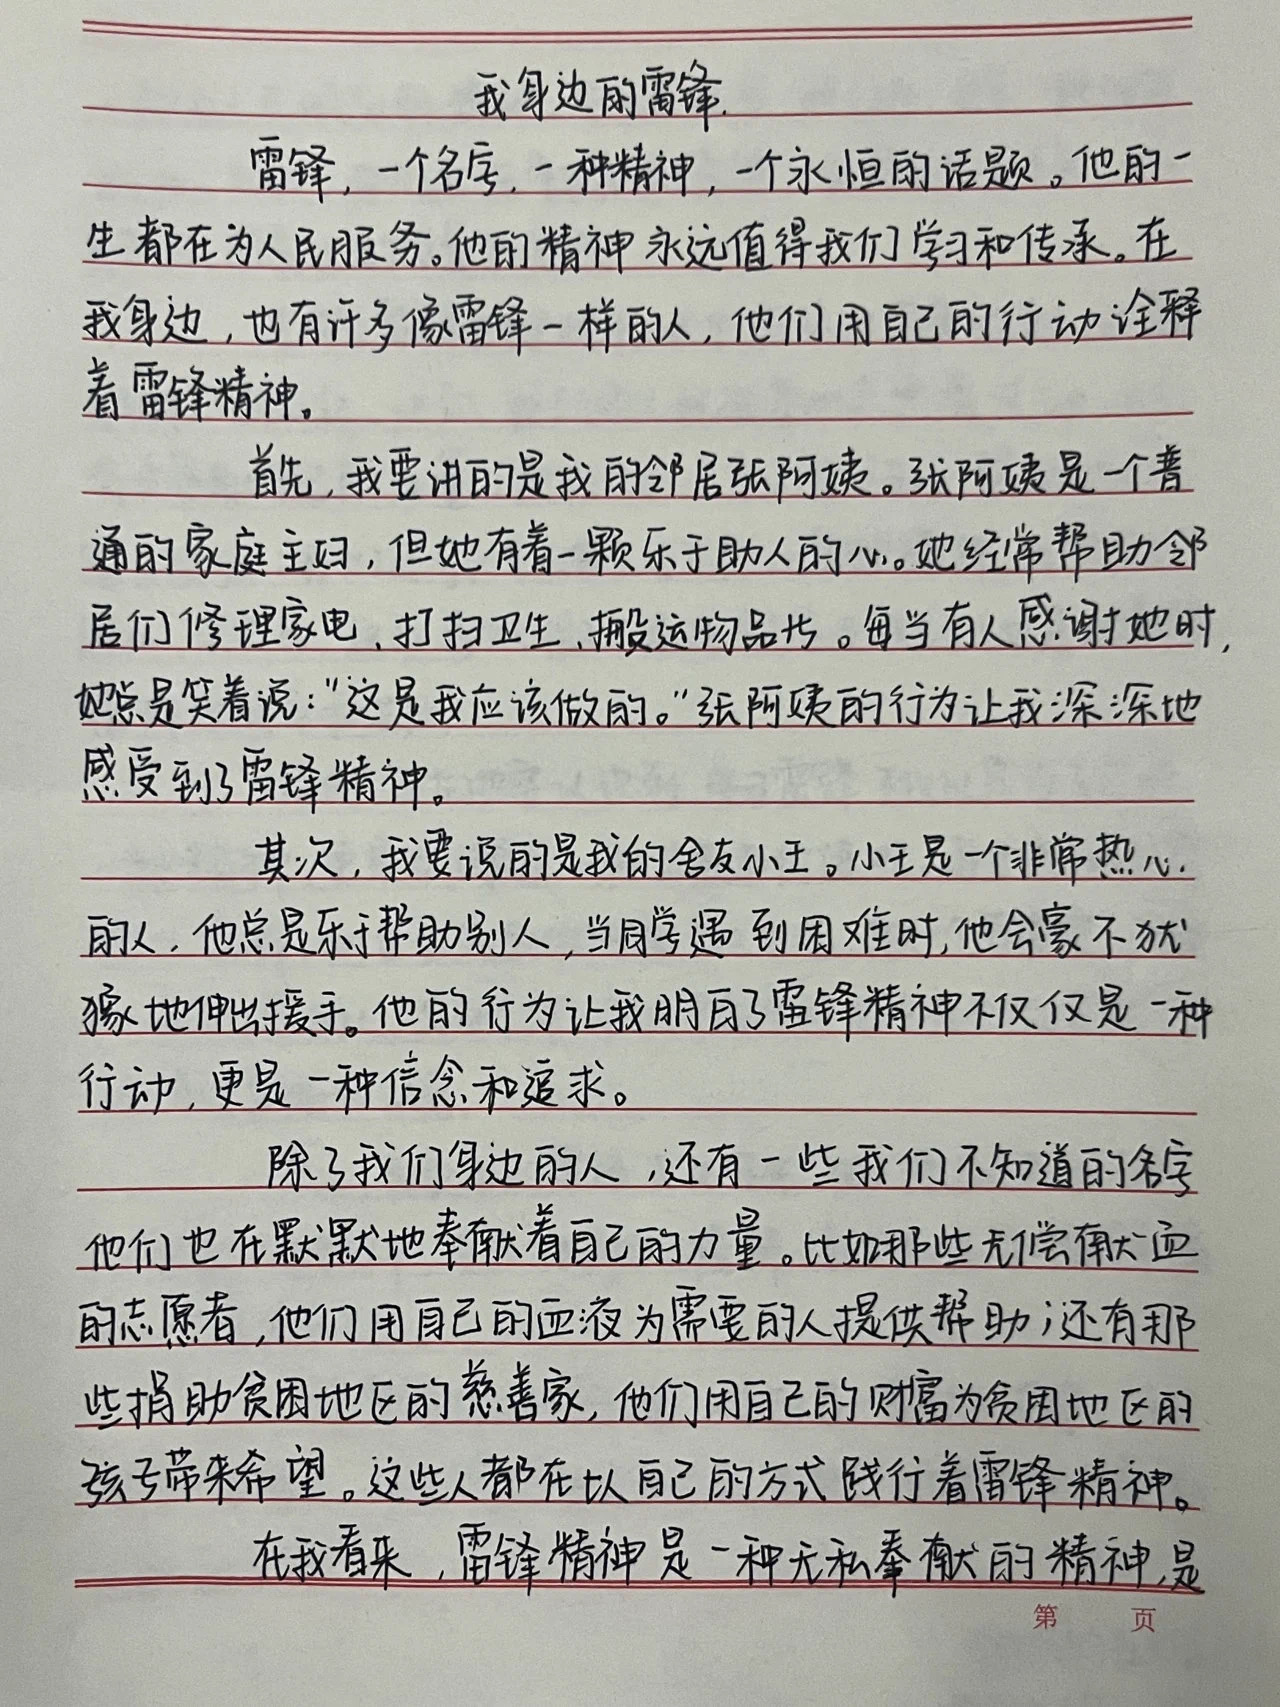 我身边的雷锋.
雷锋，一个名字，一种精神，一个永恒的话题。他的一
生都在为人民服务。他的精神永远值得我们学习和传承。在
我身边，也有许多像雷锋一样的人，他们用自己的行动诠释
着雷锋精神。
首先，我要讲的是我的邻居张阿姨。张阿姨是一个普
通的家庭主妇，但她有着一颗乐于助人的心。她经常帮助邻
居们修理家电、打扫卫生、搬运物品等。每当有人感谢她时，
她总是笑着说：“这是我应该做的。”张阿姨的行为让我深深地
感受到了雷锋精神。
其次，我要说的是我的舍友小王。小王是一个非常热心
的人，他总是乐于帮助别人，当同学遇到困难时，他会豪不犹
豫地伸出援手。他的行为让我明白了雷锋精神不仅仅是一种
行动，更是一种信念和追求。
除了我们身边的人，还有一些我们不知道的名字
他们也在默默地奉献着自己的力量。比如那些无偿献血
的志愿者，他们用自己的血液为需要的人提供帮助；还有那
些捐助贫困地区的慈善家，他们用自己的财富为贫困地区的
孩子带来希望。这些人都在以自己的方式践行着雷锋精神。
在我看来，雷锋精神是一种无私奉献的精神，是
第 页